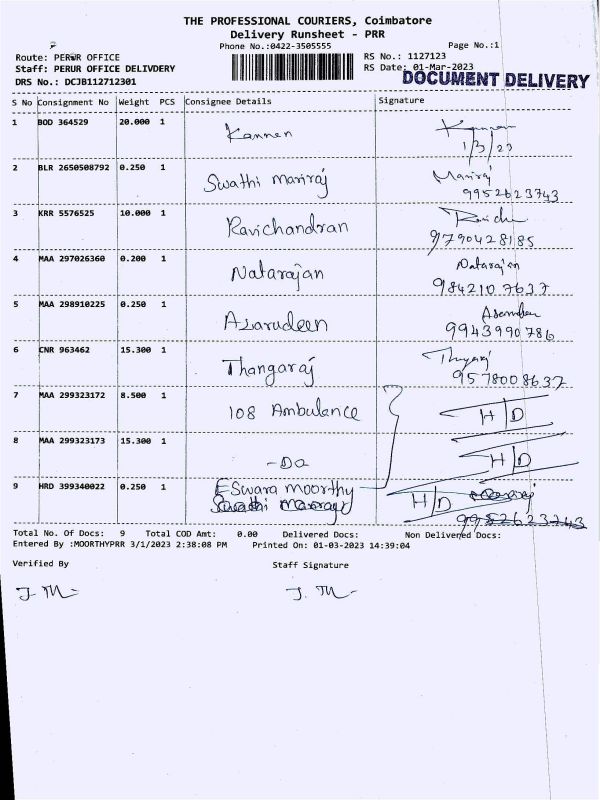 THE PROFESSIONAL COURIERS, Coimbatore
Delivery Runsheet - PRR
Phone No.:0422-3505555
Page No.:1
Route: PERUR OFFICE
RS No.: 1127123
Staff: PERUR OFFICE DELIVDERY
RS Date: 01-Mar-2023
DRS No.: DCJB112712301
DOCUMENT DELIVERY
S No Consignment No Weight PCS Consignee Details Signature
1 BOD 364529 20.000 1 Kannen Kannan
1/3/23
2 BLR 2650508792 0.250 1 Swathi mariraj Mariraj
9952623743
3 KRR 5576525 10.000 1 Ravichandran Ravichu
9790428185
4 MAA 297026360 0.200 1 Natarajan Natarajan
9842107637
5 MAA 298910225 0.250 1 Azarudeen
9943990786
6 CNR 963462 15.300 1 Thangaraj
9578008637
7 MAA 299323172 8.500 1 108 Ambulance H/D
8 MAA 299323173 15.300 1 -Do H/D
9 HRD 399340022 0.250 1 ESwara moorthy H/D
9952623743
Total No. Of Docs: 9 Total COD Amt: 0.00 Delivered Docs: Non Delivered Docs:
Entered By :MOORTHYPRR 3/1/2023 2:38:08 PM Printed On: 01-03-2023 14:39:04
Verified By Staff Signature
J. M J. M